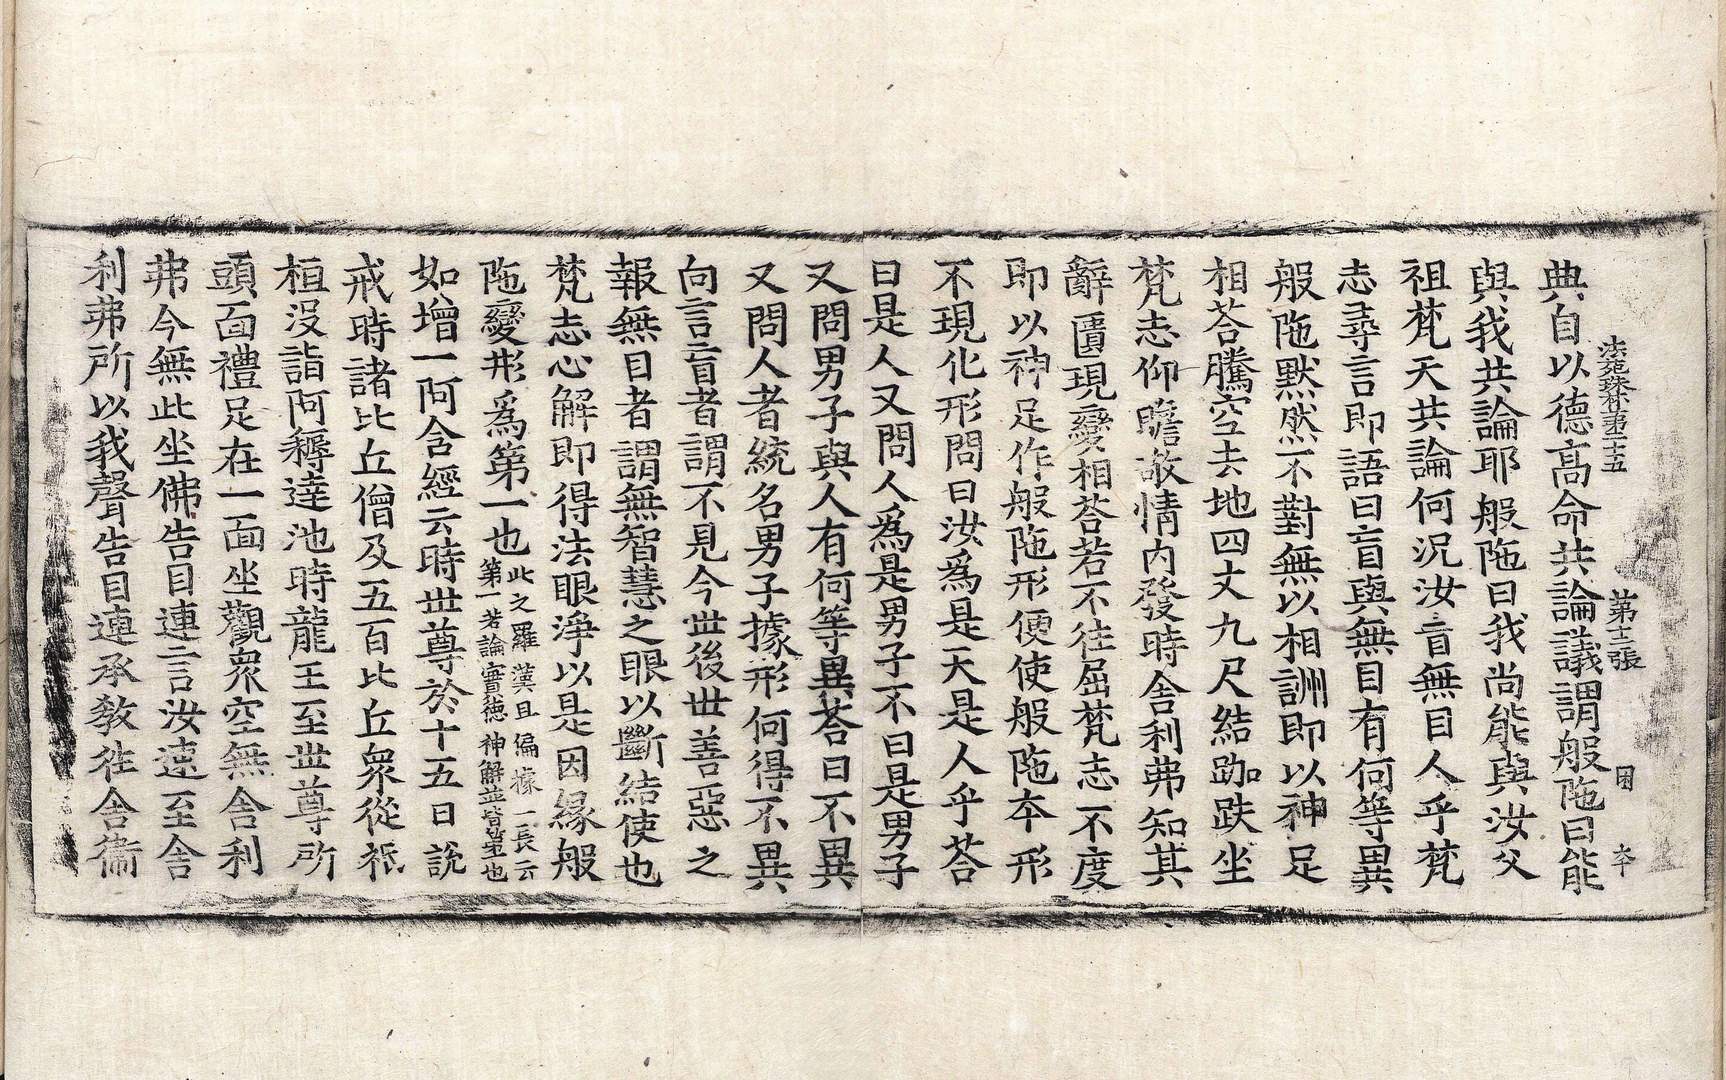 法苑珠林第二十五　第十二張　困
典自以德高命共論議謂般陁曰能
與我共論耶般陁曰我尚能與汝父
祖梵天共論何況汝盲無目人乎梵
志尋言即語曰盲與無目有何等異
般陁黙然不對無以相訓即以神足
相荅騰空去地四丈九尺結跏趺坐
梵志仰瞻敬情內發時舍利弗知其
辭匱現變相荅若不往屈梵志不度
即以神足作般陁形便使般陁夲形
不現化形問曰汝爲是天是人乎荅
曰是人又問人爲是男子不曰是男子
又問男子與人有何等異荅曰不異
又問人者統名男子據形何得不異
向言盲者謂不見今世後世善惡之
報無目者謂無智慧之眼以斷結使也
梵志心解即得法眼淨以是因緣般
陁變形爲第一也此之羅漢且偏據一長云第一若論實德神解並皆第一也
如增一阿含經云時世尊於十五日說
戒時諸比丘僧及五百比丘衆從祇
桓沒詣阿耨達池時龍王至世尊所
頭面禮足在一面坐觀衆空無舍利
弗今無此坐佛告目連言汝速至舍
利弗所以我聲告目連承敎往舍衞